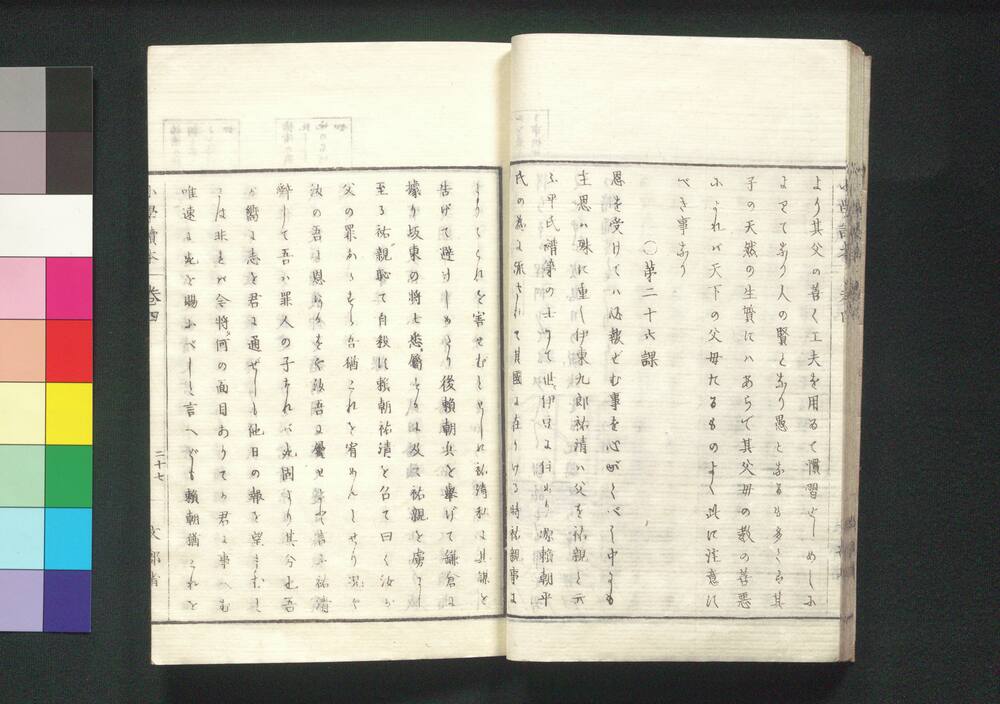 より其父の善く工夫を用ゐて慣習せしめしに
よりてなり人の賢となり愚となるも多くは其
子の天然の生質にハあらで其父母の教の善悪
にあれバ天下の父母たるものよく此に注意す
べき事なり
〇第二十六課
恩を受けてハ必報ぜむ事を心がくべし中にも
主恩ハ殊に重し伊東九郎祐清ハ父を祐親と云
ふ平氏譜第の士にて世伊豆に住めり源頼朝平
氏の為に流されて其國に在りける時祐親事に
よりてこれを害せむとせしに祐清私に其謀を
告げて避けしめたり後頼朝兵を挙げて鎌倉に
據り坂東の将士悉属するに及び祐親を虜にし
至る祐親恥て自殺す頼朝祐清を召て曰く汝が
父の罪あるすら吾猶これを宥めんとせり况や
汝の吾に恩あるをや汝吾に属せよ祐清
辞して吾ハ罪人の子なれバ死固より其分也吾
が嚮に志を君に通ぜしも他日の報を望
にハ非ず今将何の面目ありてか君に事へむ
唯速に死を賜ふべしと言へども頼朝猶これを
小學讀本 巻四
二十七 文部省